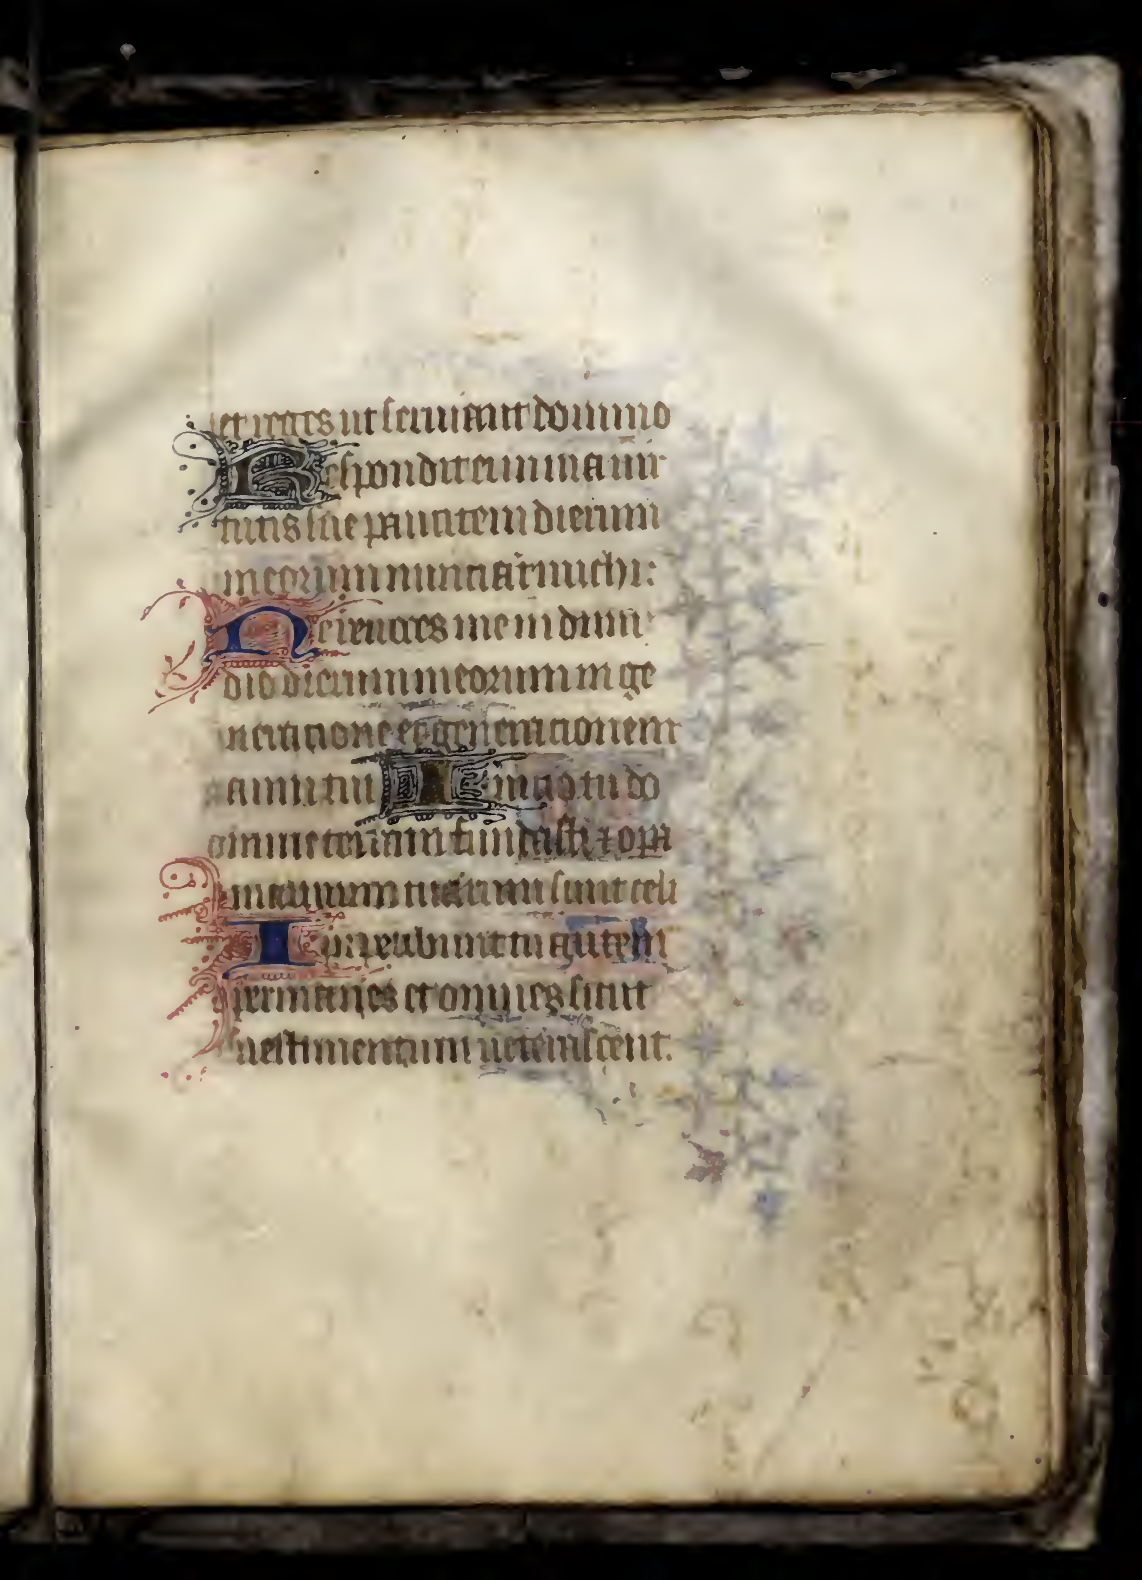 et reges ut seruiant domino
Respondit ei in uia uir
tutis sue paucitatem dierum
meorum nuncia michi:
Ne reuoces me in dimi
dio dierum meorum in ge
neratione et generationem
anni tui Initio tu do
mine terram fundasti et opa
manuum tuarum sunt celi
Ipsi peribunt tu autem
permanes et omnes sicut
uestimentum ueterascent.